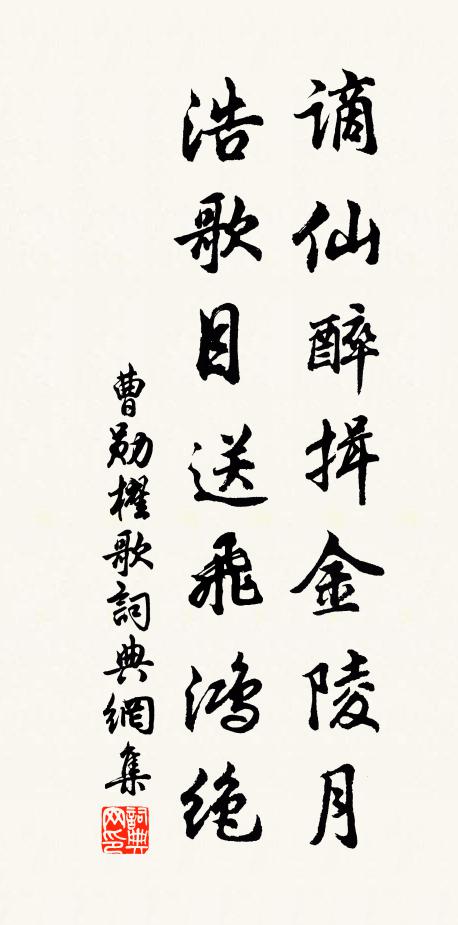 谪仙醉揖金陵月
浩歌目送飛鴻绝
曹勋櫂歌詞典網集
詞典网印